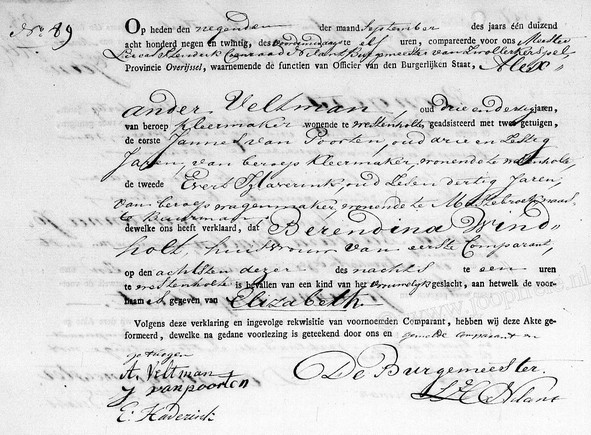 No. 89
Op heden den negenden der maand September des jaars één duizend
acht honderd negen en twintig, des voordemiddags te elf uren, compareerde voor ons Meester
Hendrik Coenraad Burgemeester van Zwollerkerspel,
Provincie Overijssel, waarnemende de functien van Officier van den Burgerlijken Staat, Alex-
ander Veltman, oud drie en dertig jaren,
van beroep Kleermaker wonende te westenholte, geadsisteerd met twee getuigen,
de eerste Jannes van Poorten, oud drie en sestig
Jaren, van beroep Kleermaker, wonende te westenholte
de tweede Evert oud seven dertig Jaren,
van beroep wagenmaker, wonende te Mastebroek, naast
te Buurman
dewelke ons heeft verklaard, dat Berendina Wind=
holt, huisvrouw van eerste Comparant,
op den achtsten dezer des nachts te een uren
te westenholte is bevallen van een kind van het vrouwelijk geslacht, aan hetwelk de voor-
naam is gegeven van Elizabeth.
Volgens deze verklaring en ingevolge rekwisitie van voornoemden Comparant, hebben wij deze Akte ge-
formeerd, dewelke na gedane voorlezing is geteekend door ons en gemelde comparant en
getuigen
A. Veltman
J van poorten
De Burgemeester.